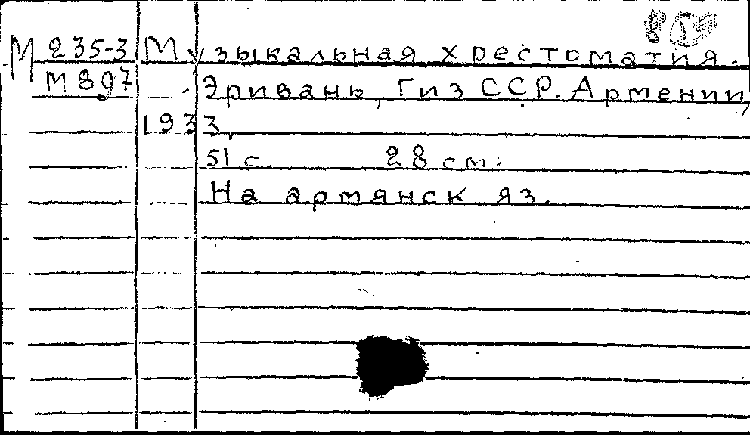 М 235-3 Музыкальная хрестоматия.
М897 Эривань, Гиз ССР. Армении,
1933,
51 с. 28 см.
На армянск яз.